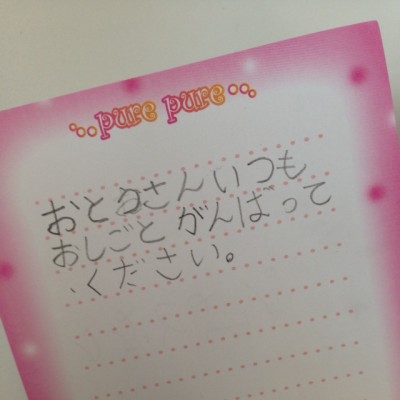 pure pure
おとうさんいつも
おしごとがんばって
ください。